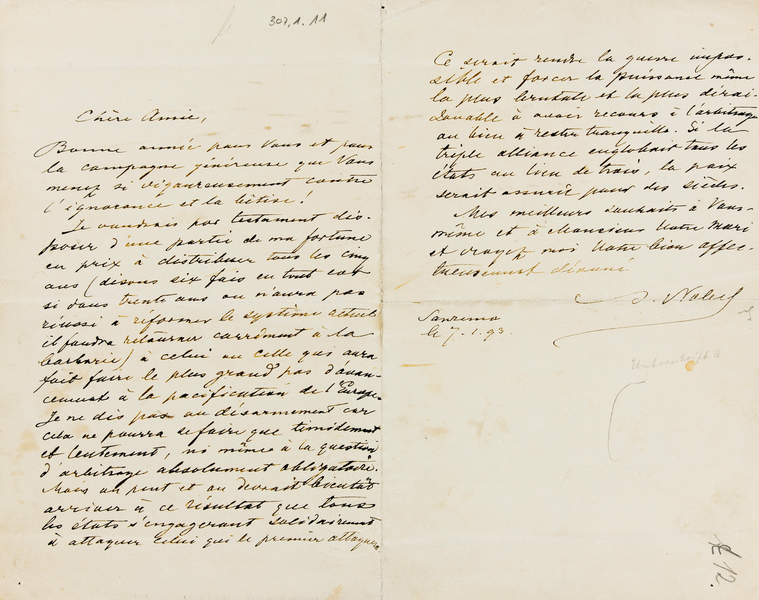 307.1.11
Chère Amie,
Bonne année pour Vous et pour
la campagne généreuse que Vous
menez si vigoureusement contre
l'ignorance et la bêtise!
Je voudrais par testament dis-
poser d'une partie de ma fortune
en prix à distribuer tous les cinq
ans (disons six fois en tout car
si dans trente ans on n'aura pas
réussi à réformer le système actuel
il faudra retourner carrément à la
barbarie) à celui ou celle qui aura
fait faire le plus grand pas d'avan-
cement à la pacification de l'Europe.
Je ne dis pas au désarmement car
cela ne pourra se faire que timidement
et lentement, ni même à la question
d'arbitrage absolument obligatoire.
Mais on peut et on devrait bientôt
arriver à ce résultat que tous
les états s'engageront solidairement
à attaquer celui qui le premier attaque.
Ce serait rendre la guerre impos-
sible et forcer la puissance même
la plus brutale et la plus dérai-
sonnable à avoir recours à l'arbitrage
ou bien à rester tranquille. Si la
triple alliance englobait tous les
états au lieu de trois, la paix
serait assurée pour des siècles.
Mes meilleurs souhaits à Vous-
même et à Monsieur Votre Mari
et croyez moi Votre bien affec-
tueusement dévoué
A. Nobel
Sanremo
le 7.1.93.
A 12.